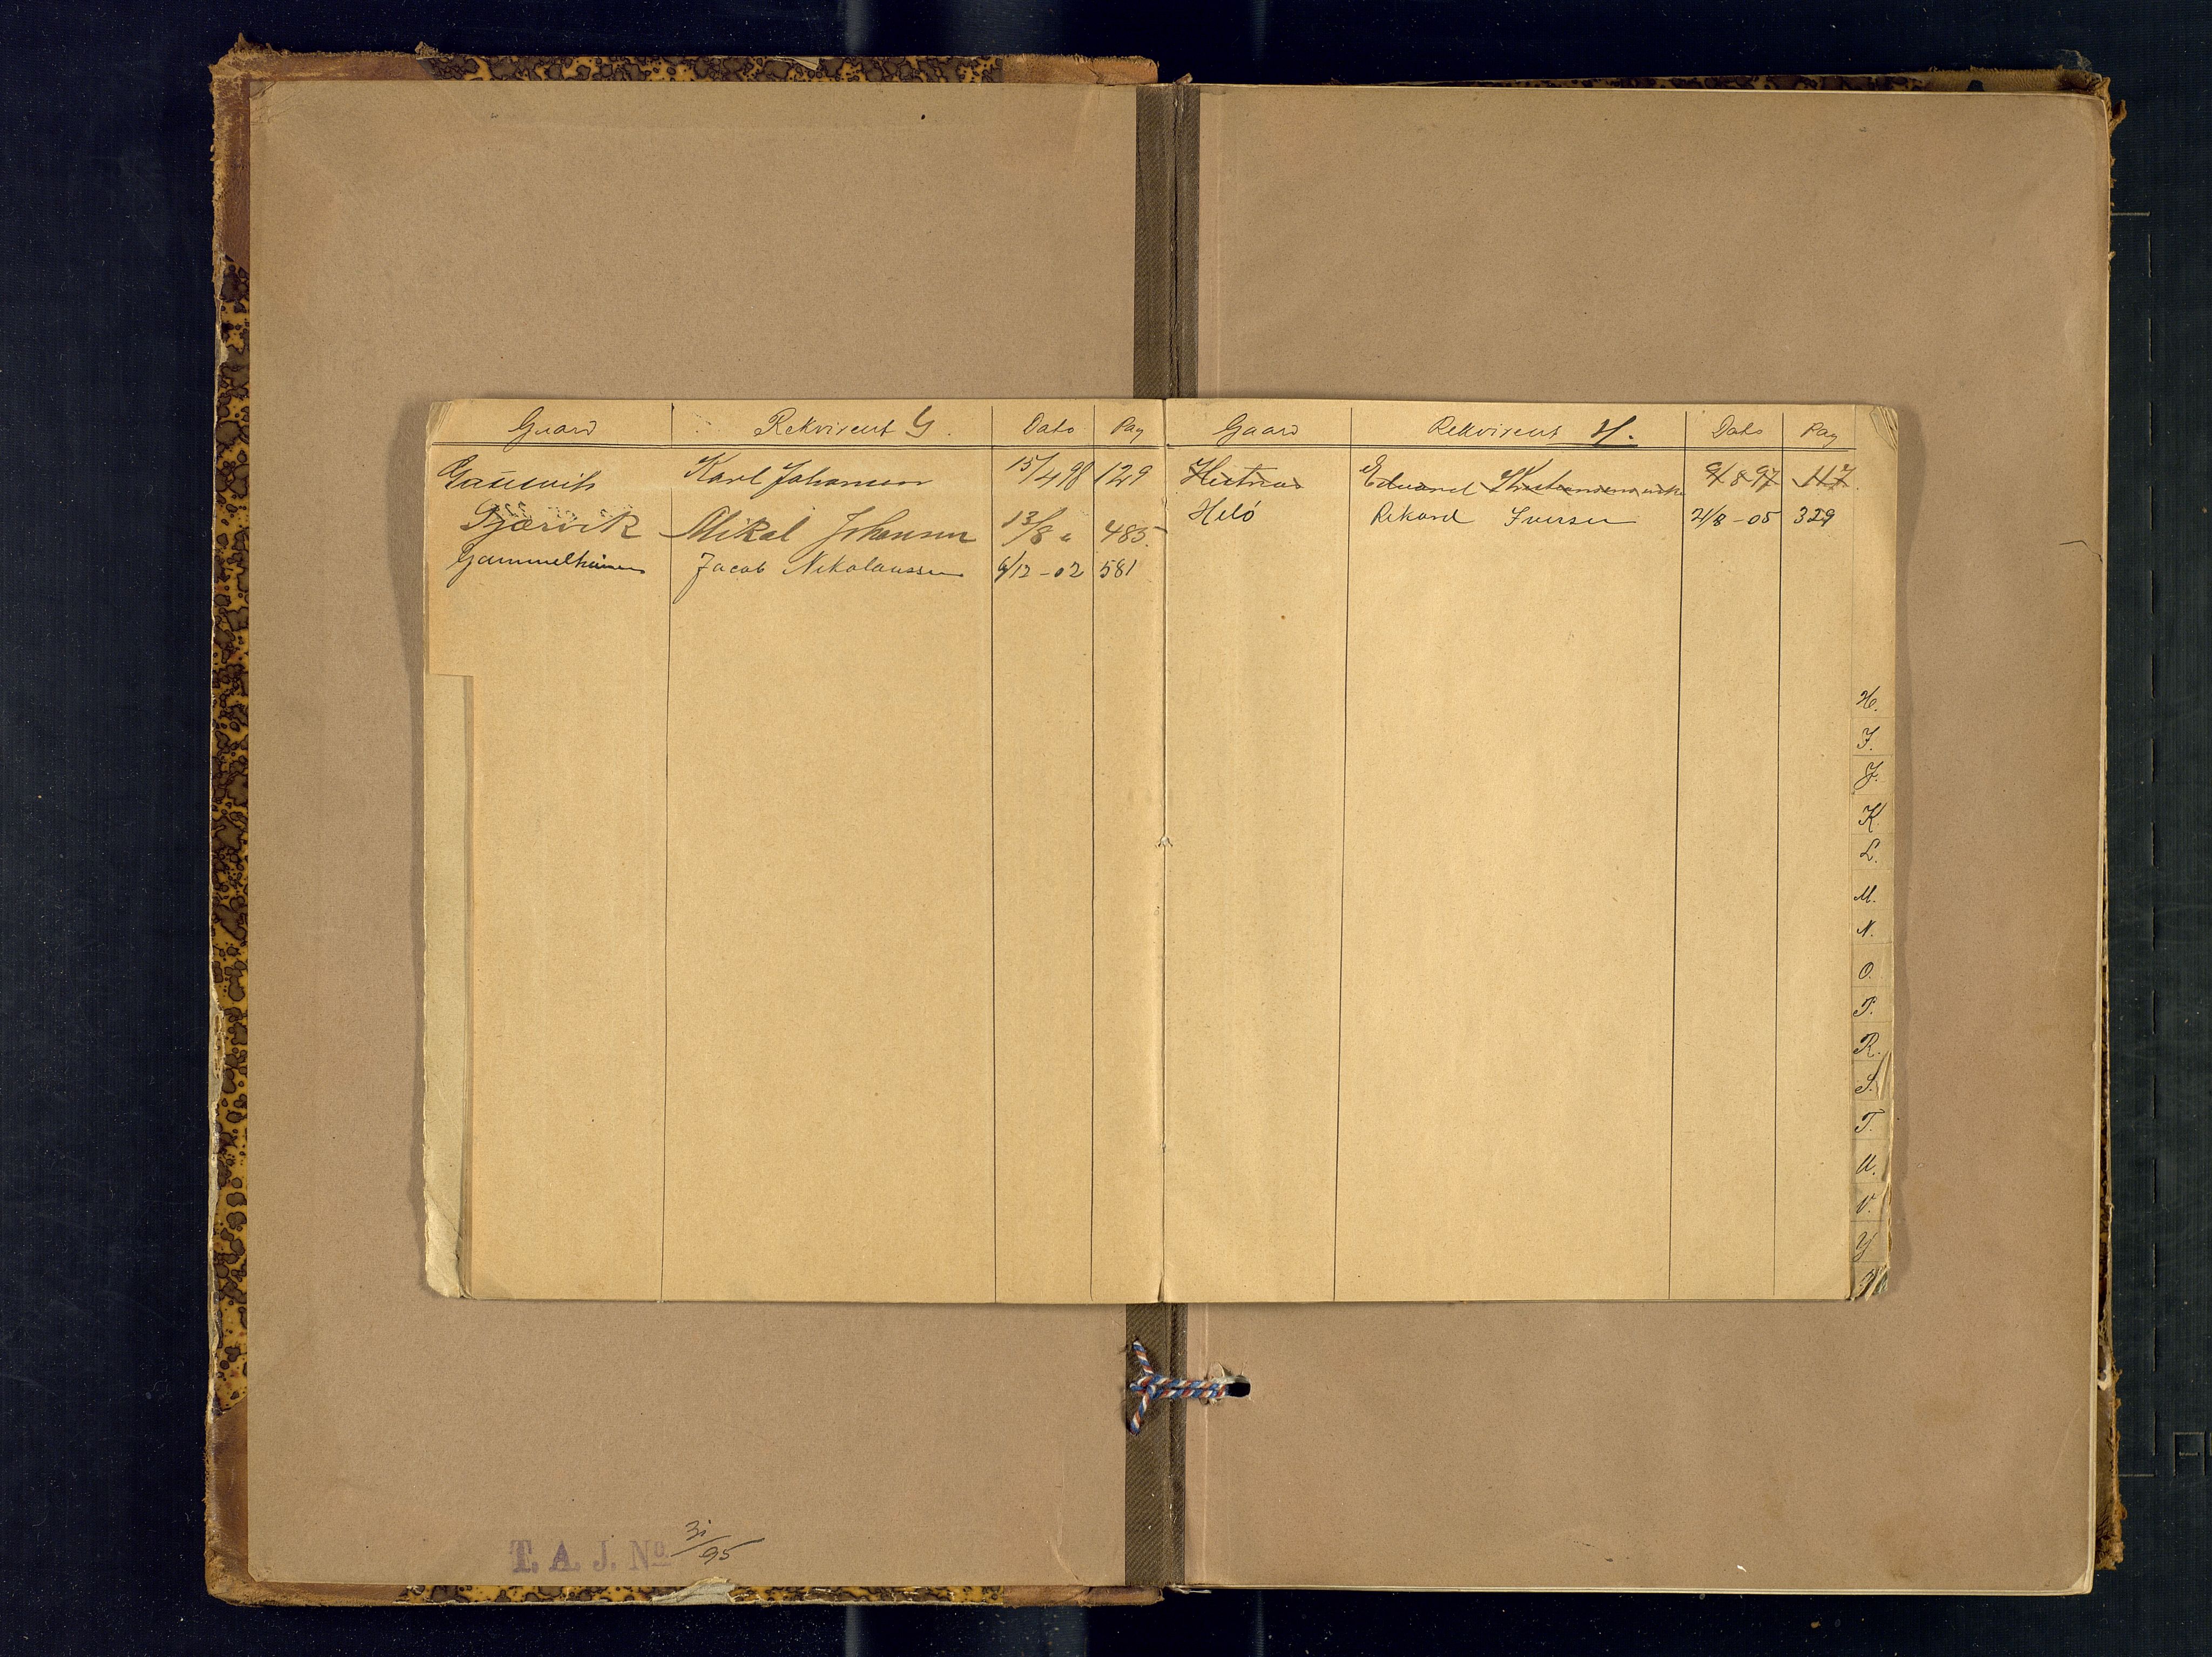 Gaard Rekvirent G. Dato Pag
Karl Johansen 15/4 98 129
Gjærvik Mikal Johansen 13/8 " 485.
Jacob Nikolaussen 6/12 - 02 581
Gaard Rekvirent H. Dato Pag
Edvard 9/8 97 117.
Helö Rikard Iversen 21/8 - 05 329
H.
I.
J.
K
L.
M.
N.
O.
P.
R.
S.
T.
U.
V.
Y
T. A. J. No 31/95